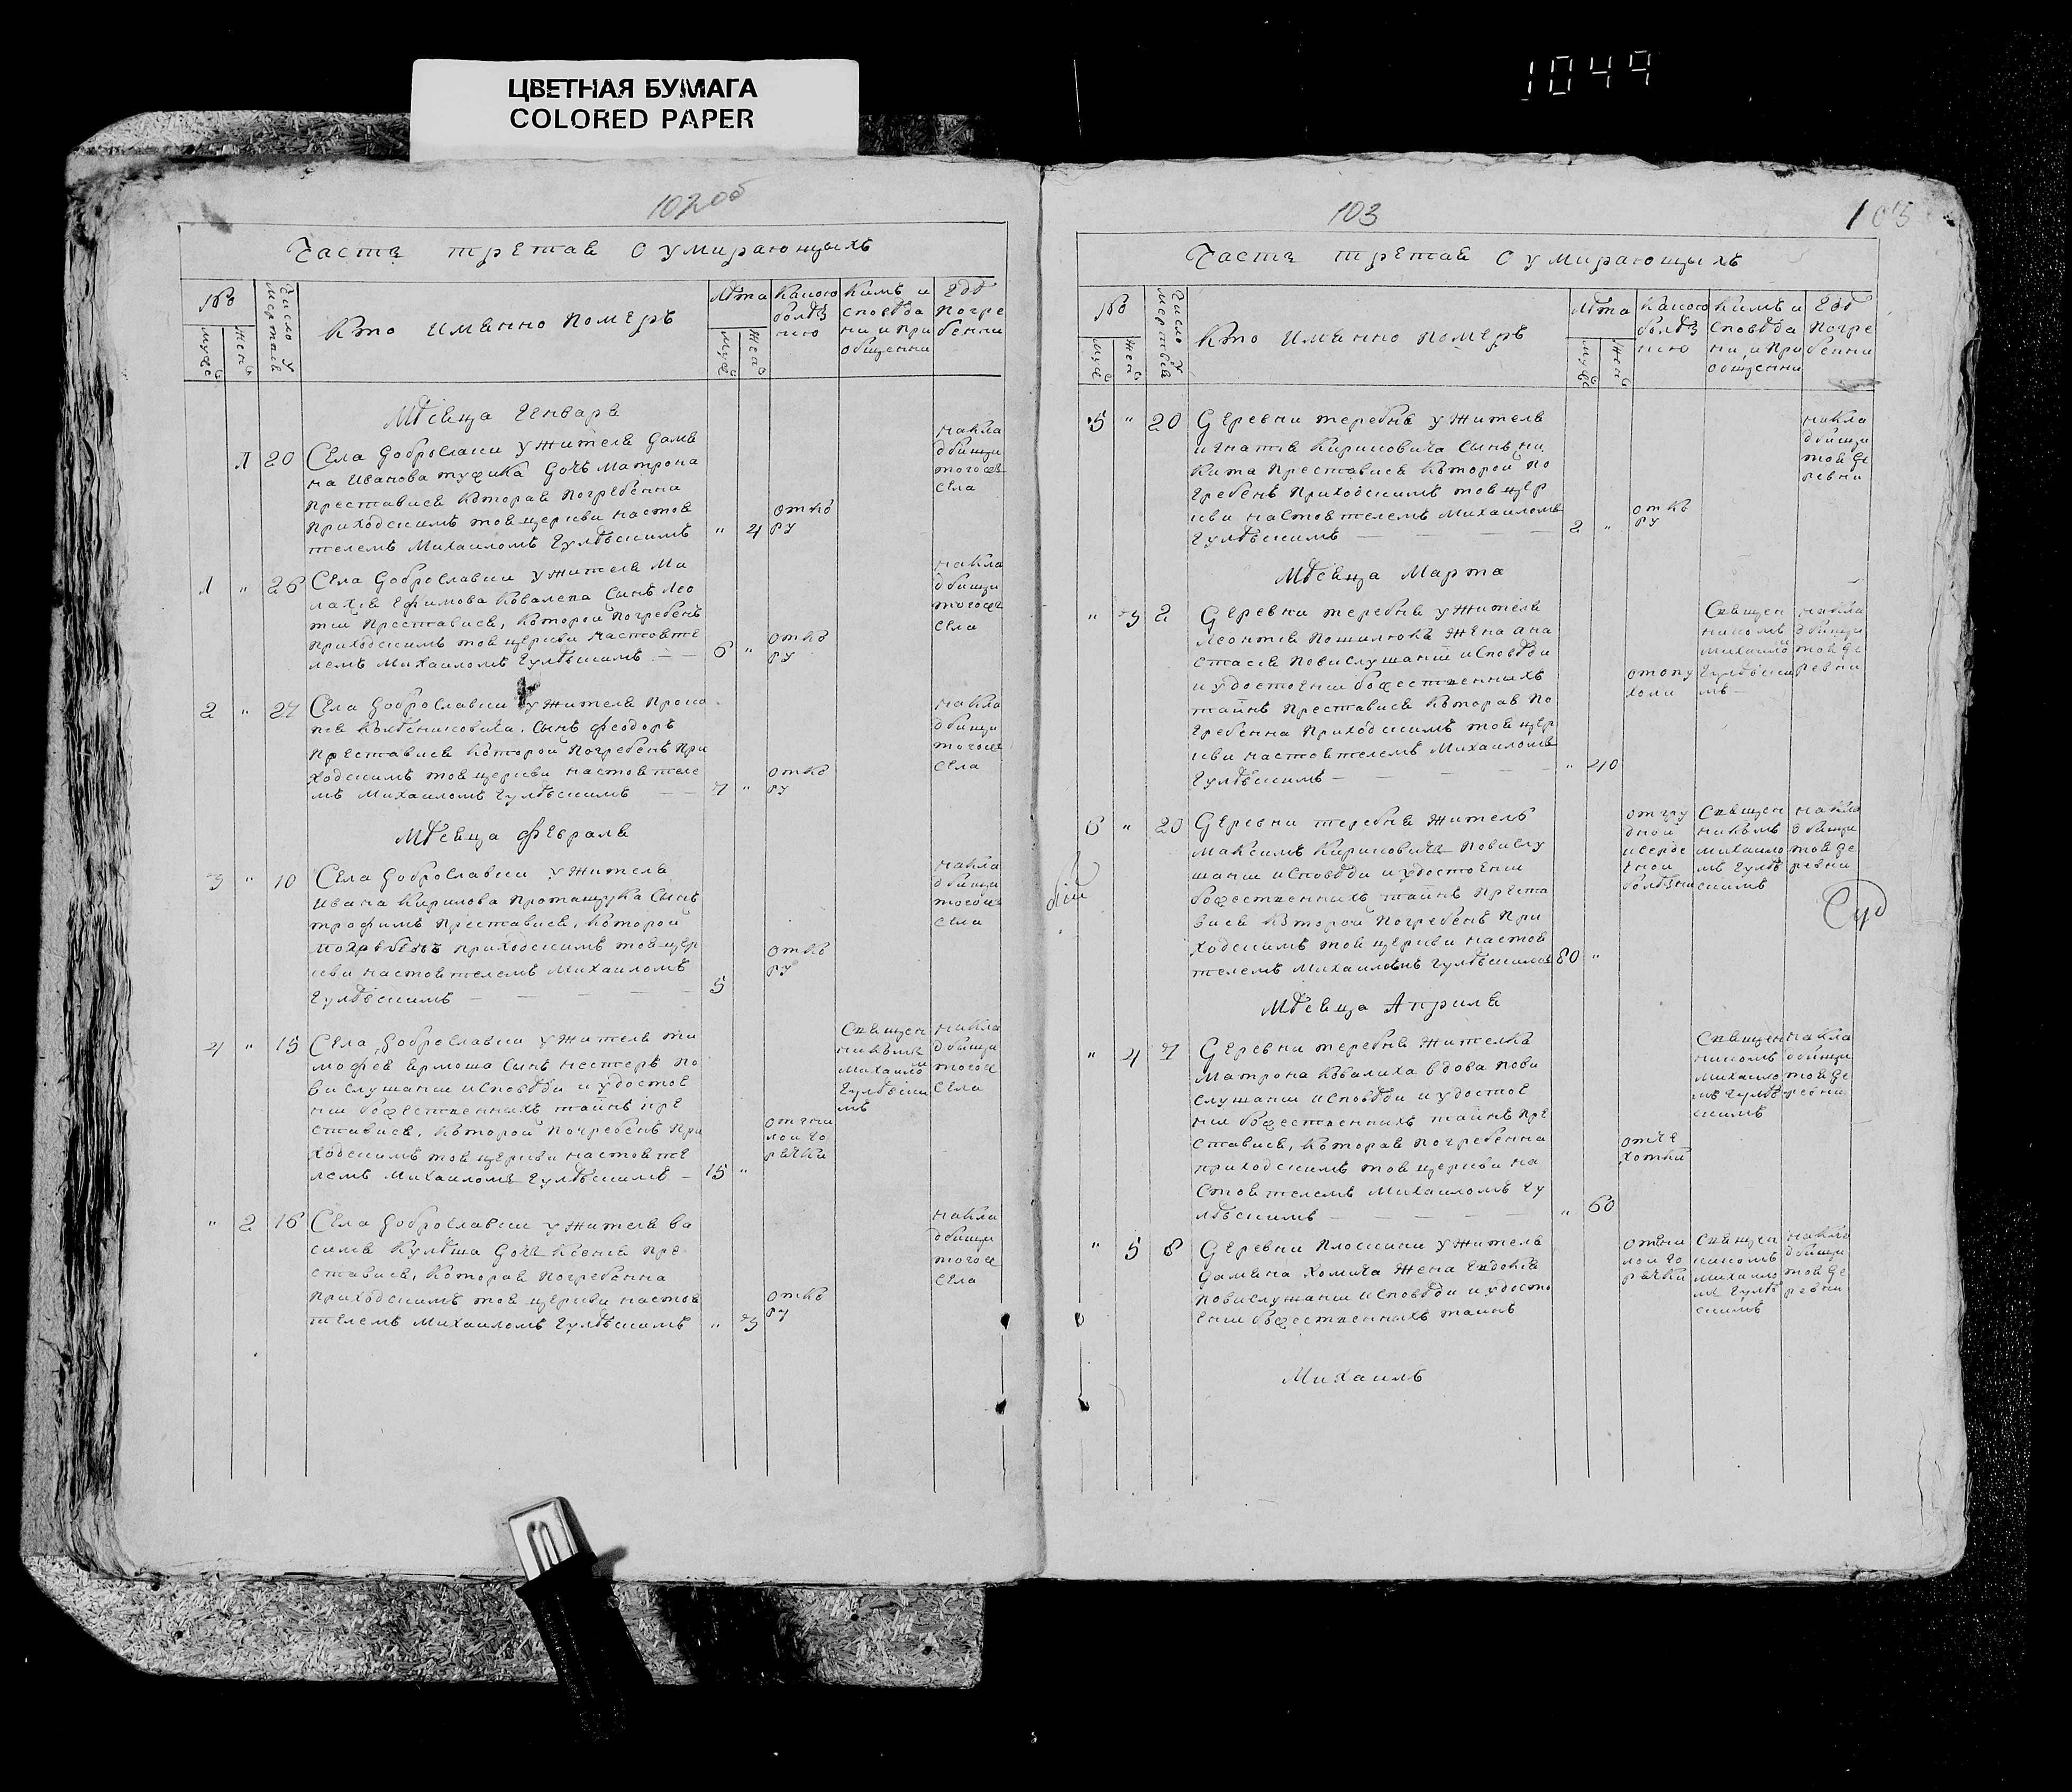 ЦВЕТНАЯ БУМАГА
COLORED PAPER
1049
102об
Часть третая о умирающыхъ
№
Число умертвія
Кто имянно померъ
Лѣта
Какою болѣзнію
Кимъ исповѣдани и приобщенни
Гдѣ погребенни
муж
жен
муж
жен
Мѣсяца Генваря
1 20 Села Доброславки у жителя Дамя
на Иванова Дочь Матрона
преставися которая погребенна
приходскимъ тоя церкви настоя
телемъ Михаиломъ Гулѣвскимъ
" 4
от кору
на кладбищи того села
1 " 26 Села Доброславки у жителя Ма
лахія Ефимова Ковалепа Сынъ Лео
тій преставися, которой погребенъ
приходскимъ тоя церкви настояте
лемъ Михаиломъ Гулѣвскимъ
6 "
от кору
на кладбищи того села
2 " 27 Села Доброславки у жителя Проко
пія Сынъ Феодоръ
преставися которой погребенъ при
ходскимъ тоя церкви настояте
мъ Михаиломъ Гулѣвскимъ
7 "
от кору
на кладбищи того села
Мѣсяца Февраля
3 " 10 Села Доброславки у жителя
Ивана Кирилова Протащука Сынъ
Трофимъ преставися, которой
погребенъ приходскимъ тоя цер
кви настоятелемъ Михаиломъ
Гулѣвскимъ
5
от кору
на кладбищи того села
4 " 15 Села Доброславки у жителя Ти
мофея Ярмоша Сынъ Нестеръ по
вислушании исповѣди и удостое
нии божественныхъ тайнъ пре
ставися, которой погребенъ при
ходскимъ тоя церкви настояте
лемъ Михаиломъ Гулѣвскимъ
15 "
от гнилой горячки
Священникомъ Михаиломъ Гулѣвскимъ
на кладбищи того села
" 2 16 Села Доброславки у жителя Ва
силя Кулѣша Дочь Ксенія пре
ставися, которая погребенна
приходскимъ тоя церкви настоя
телемъ Михаиломъ Гулѣвскимъ
" 3
от кору
на кладбищи того села
103
103
Часть третая о умирающыхъ
№
Число умертвія
Кто имянно померъ
Лѣта
Какою болѣзнію
Кимъ исповѣдани, и приобщенни
Гдѣ погребенни
муж
жен
муж
жен
5 " 20 Деревни Теребня у жителя
Игнатія Кириковича Сынъ Ни
кита преставися которой по
гребенъ приходскимъ тоя цер
кви настоятелемъ Михаиломъ
Гулѣвскимъ
2 "
от кору
на кладбищи тоя деревни
Мѣсяца Марта
" 3 2 Деревни Теребня у жителя
Леонтія Пошилюка Жена Ана
стасія повислушании исповѣди
и удостоении божественныхъ
тайнъ преставися которая по
гребенна приходскимъ тоя цер
кви настоятелемъ Михаиломъ
Гулѣвскимъ
" 40
от опухоли
Священникомъ Михаиломъ Гулѣвскимъ
на кладбищи тоя деревни
6 " 20 Деревни Теребня житель
Максимъ Кириковичъ повислу
шании исповѣди и удостоении
божественныхъ тайнъ преста
вися которой погребенъ при
ходскимъ тоя церкви настоя
телемъ Михаиломъ Гулѣвскимъ
80 "
от грудной и сердечной болѣзни
Священникомъ Михаиломъ Гулѣвскимъ
на кладбищи тоя деревни
Мѣсяца Априля
" 4 7 Деревни Теребня жителка
Матрона Ковалиха вдова пови
слушании исповѣди и удостое
нии божественныхъ тайнъ пре
ставися, которая погребенна
приходскимъ тоя церкви на
стоятелемъ Михаиломъ Гу
лѣвскимъ
" 60
от чехотки
Священникомъ Михаиломъ Гулѣвскимъ
на кладбищи тоя деревни
" 5 8 Деревни Плоскини у жителя
Дамяна Хомича Жена Евдокія
повислушании исповѣди и удосто
ении божественныхъ тайнъ
от гнилой горячки
Священникомъ Михаиломъ Гулѣвскимъ
на кладбищи тоя деревни
Михаилъ